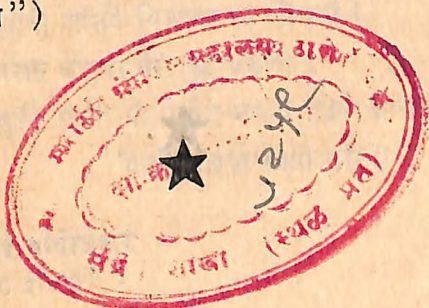 ”)
मराठी ग्रंथ संग्रहालय ठाणे
दा.क्र.
संदर्भ शाखा (स्थळ प्रत)